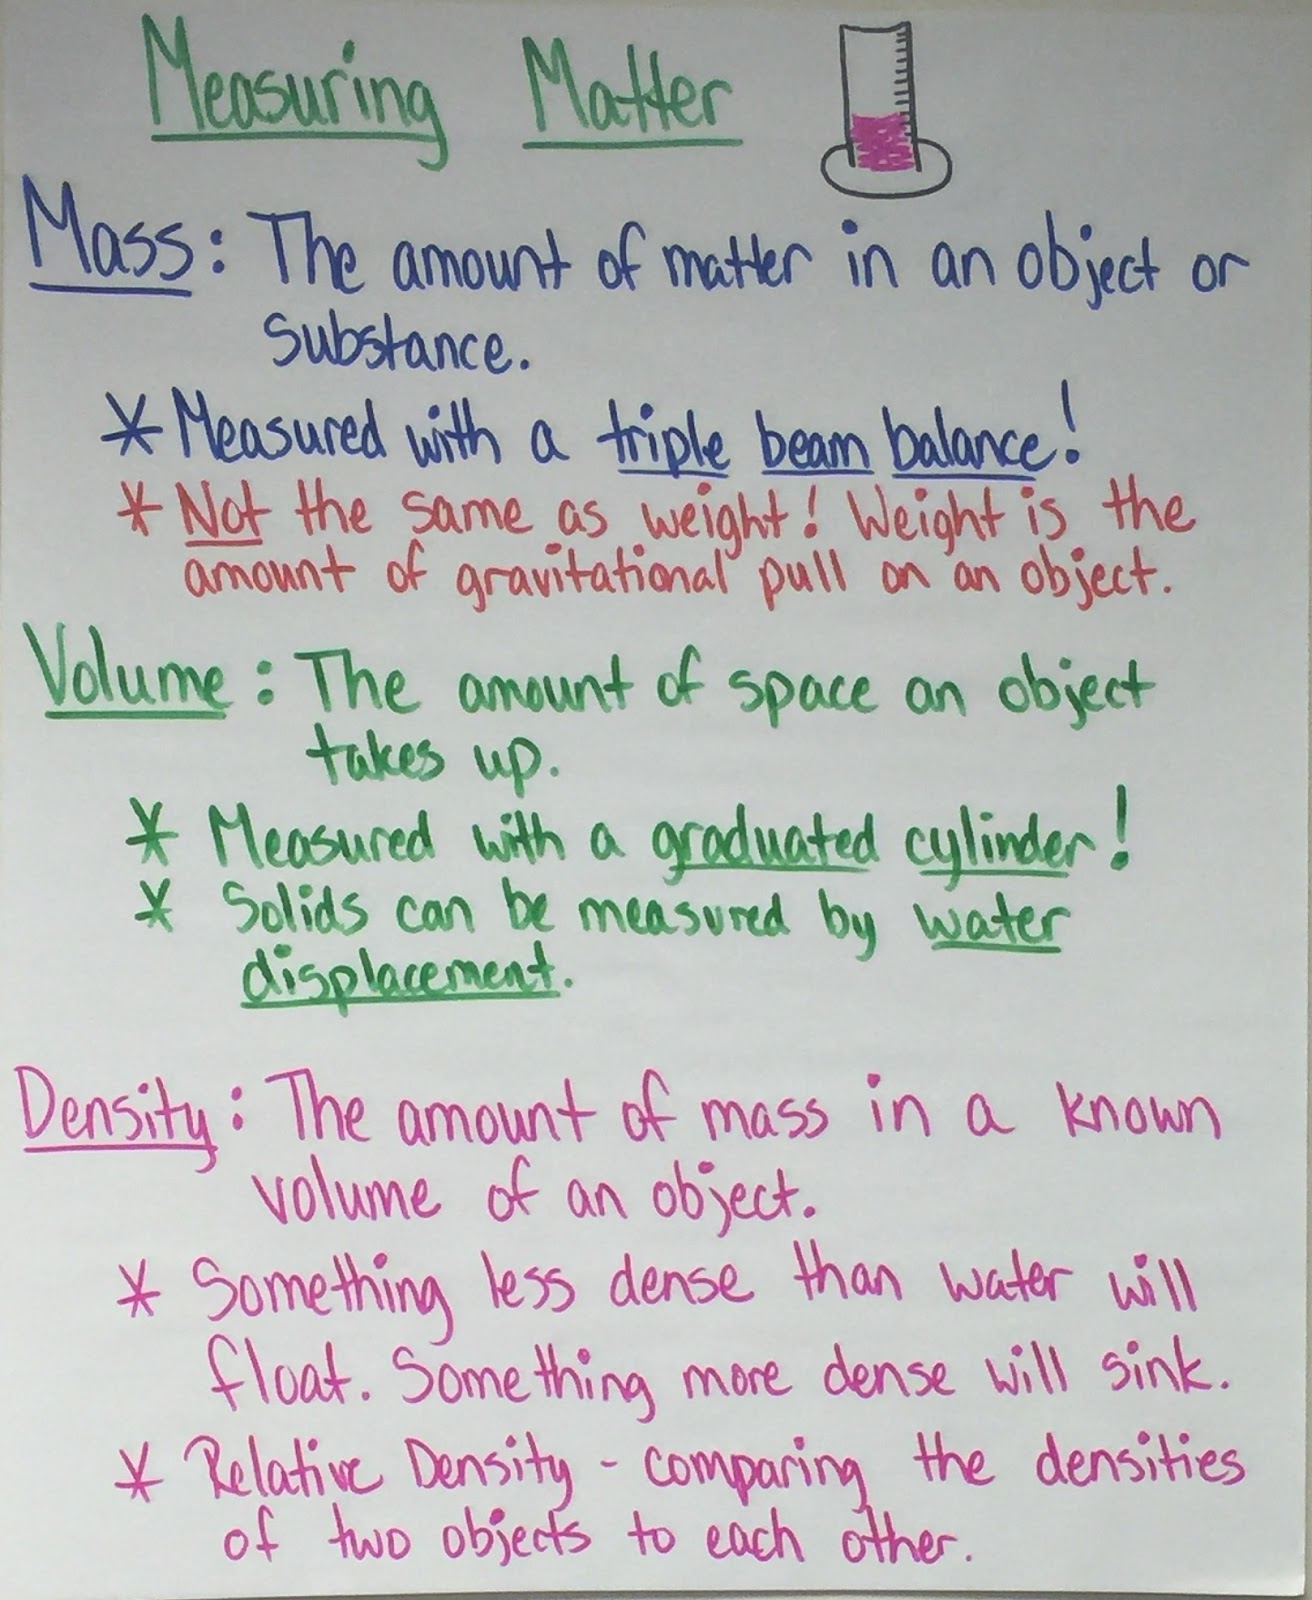 Measuring Matter
Mass: The amount of matter in an object or
substance.
* Measured with a triple beam balance!
* Not the same as weight! Weight is the
amount of gravitational pull on an object.
Volume: The amount of space an object
takes up.
* Measured with a graduated cylinder!
* Solids can be measured by water
displacement.
Density: The amount of mass in a known
volume of an object.
* Something less dense than water will
float. Something more dense will sink.
* Relative Density - comparing the densities
of two objects to each other.